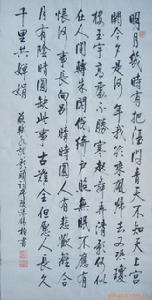 明月幾時有把酒問青天不知天上宫
闕今夕是何年我欲乘風歸去又恐瓊
樓玉宇高處不勝寒起舞弄清影何似
在人間轉朱閣低綺户照無眠不應有
恨何事長向别時圓人有悲歡離合
月有陰晴圓缺此事古難全但願人長久
千里共嬋娟
蘇軾水調歌頭
書